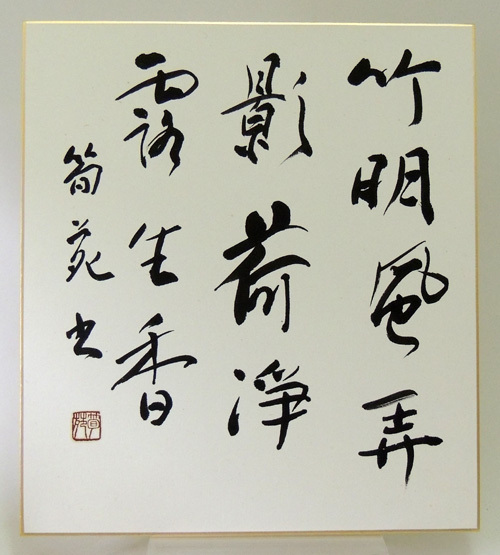 竹明風弄
影荷淨
露生香
筍苑書